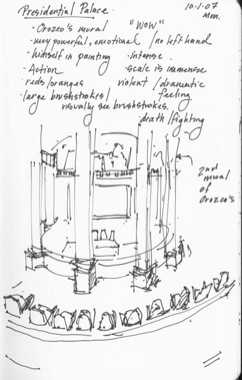 Presidential Palace
10·1·07
Mon.
- Orozco's mural "WOW"
- very powerful, emotional / no left hand
- himself in painting - intense.
- Action - scale is immense
- reds/oranges violent / dramatic
- large brushstrokes / feeling.
visually see brushstrokes.
death/fighting
2nd
mural
of
Orozco's